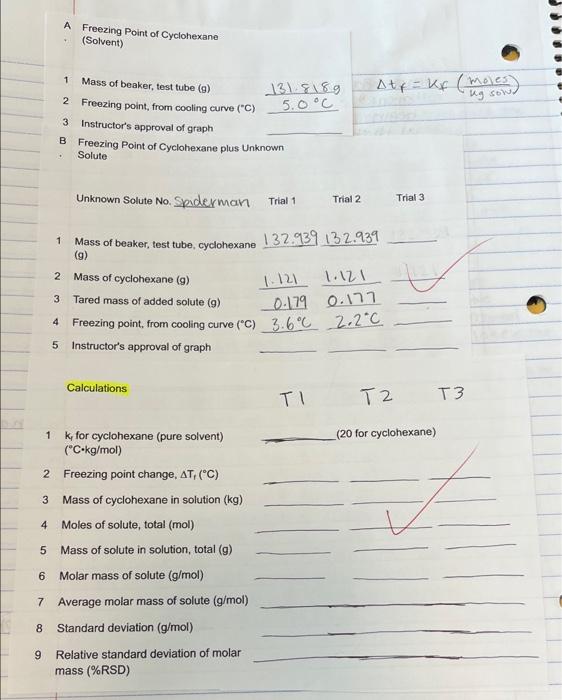 A Freezing Point of Cyclohexane
. (Solvent)
1 Mass of beaker, test tube (g) 131.818g Δtf = Kf (moles / kg solv)
2 Freezing point, from cooling curve (°C) 5.0 °C
3 Instructor's approval of graph
B Freezing Point of Cyclohexane plus Unknown
. Solute
Unknown Solute No. Spiderman Trial 1 Trial 2 Trial 3
1 Mass of beaker, test tube, cyclohexane 132.939 132.939
(g)
2 Mass of cyclohexane (g) 1.121 1.121
3 Tared mass of added solute (g) 0.179 0.177
4 Freezing point, from cooling curve (°C) 3.6°C 2.2°C
5 Instructor's approval of graph
Calculations
T1 T2 T3
1 kf for cyclohexane (pure solvent) (20 for cyclohexane)
(°C•kg/mol)
2 Freezing point change, ΔTf (°C)
3 Mass of cyclohexane in solution (kg)
4 Moles of solute, total (mol)
5 Mass of solute in solution, total (g)
6 Molar mass of solute (g/mol)
7 Average molar mass of solute (g/mol)
8 Standard deviation (g/mol)
9 Relative standard deviation of molar
mass (%RSD)